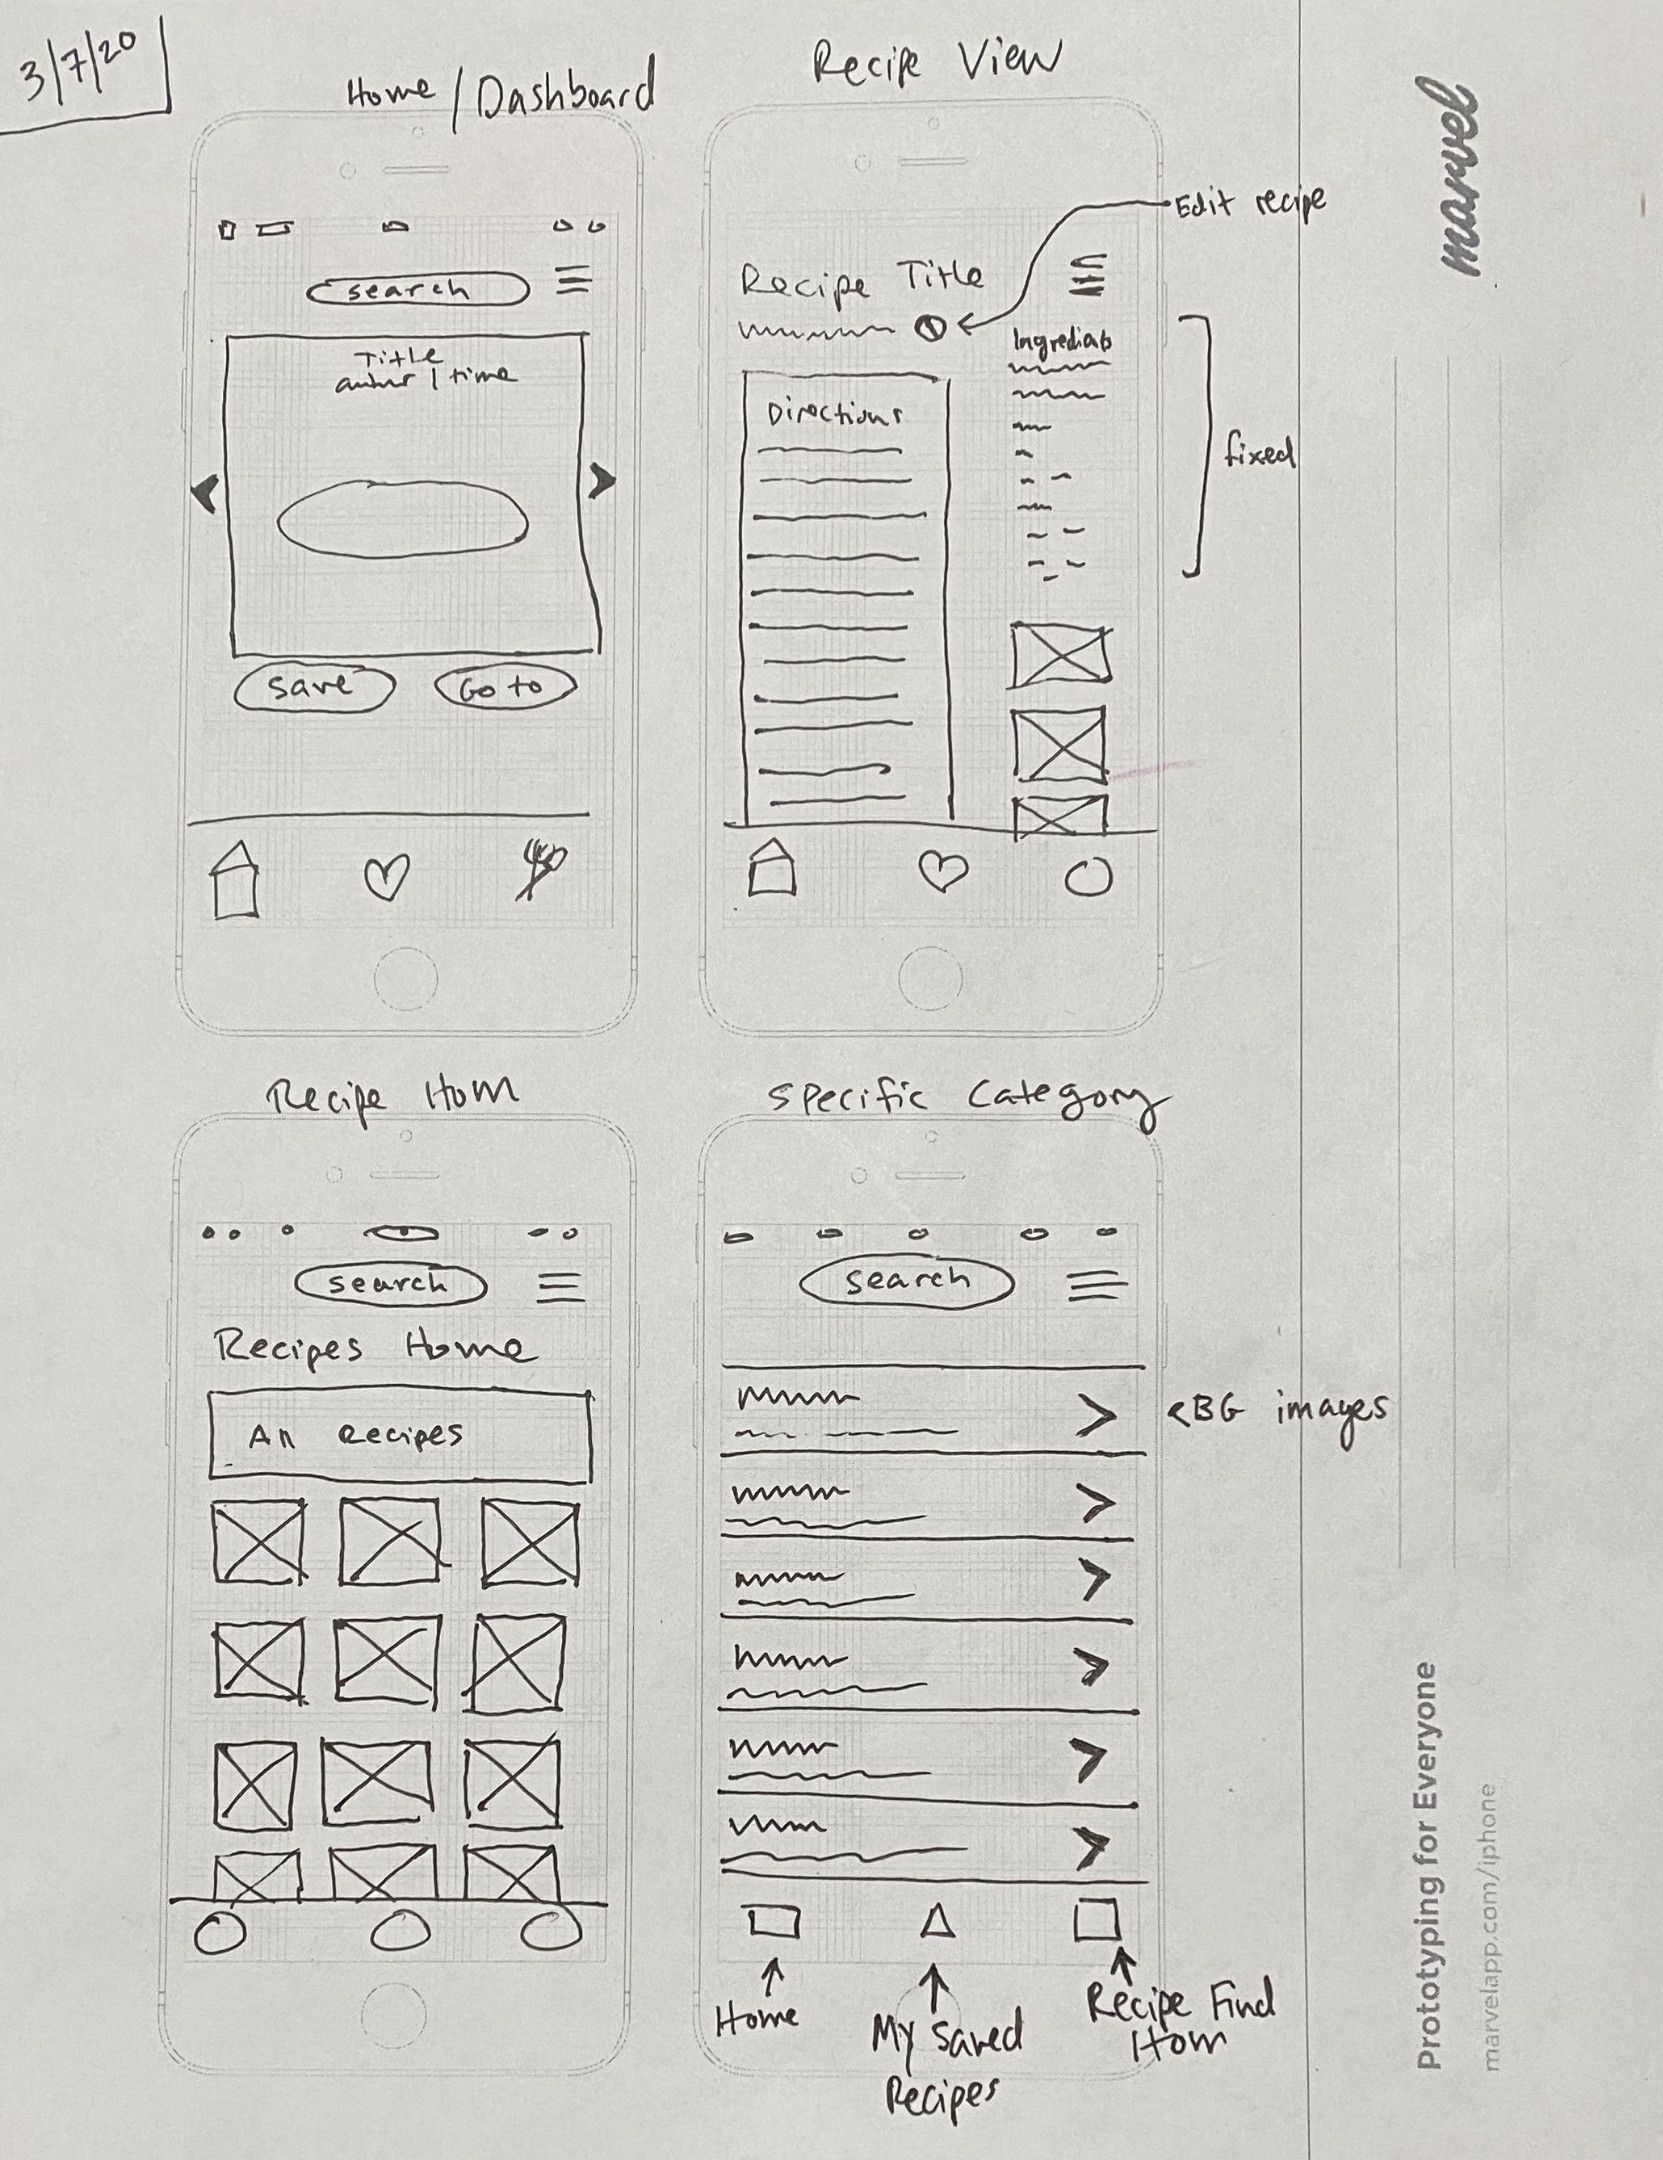 3/7/20
Home/Dashboard
search
Title
author | time
Save
Go to
Recipe View
Edit recipe
Recipe Title
Ingredients
Directions
fixed
Recipe Hom
search
Recipes Home
All Recipes
Specific Category
search
<BG images
Home
My Saved
Recipes
Recipe Find
Hom
marvel
Prototyping for Everyone
marvelapp.com/iphone